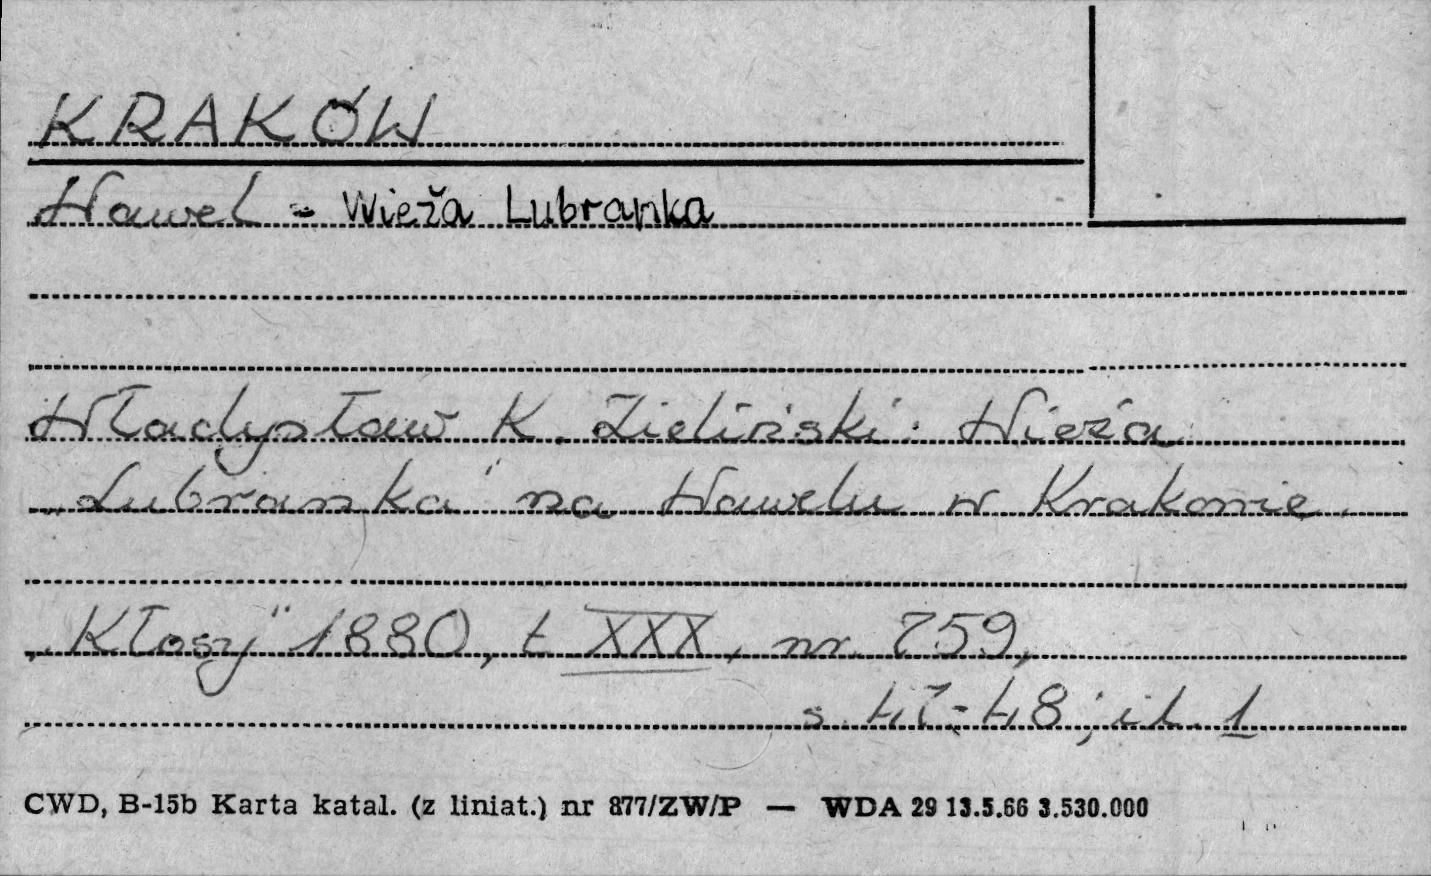 KRAKÓW
Wawel - Wieża Lubranka
Władysław K. Zieliński: Wieża
„Lubranka" na Wawelu w Krakowie.
„Kłosy" 1880, t. XXX, nr. 759,
s. 47-48; il. 1
CWD, B-15b Karta katal. (z liniat.) nr 877/ZW/P — WDA 29 13.5.66 3.530.000